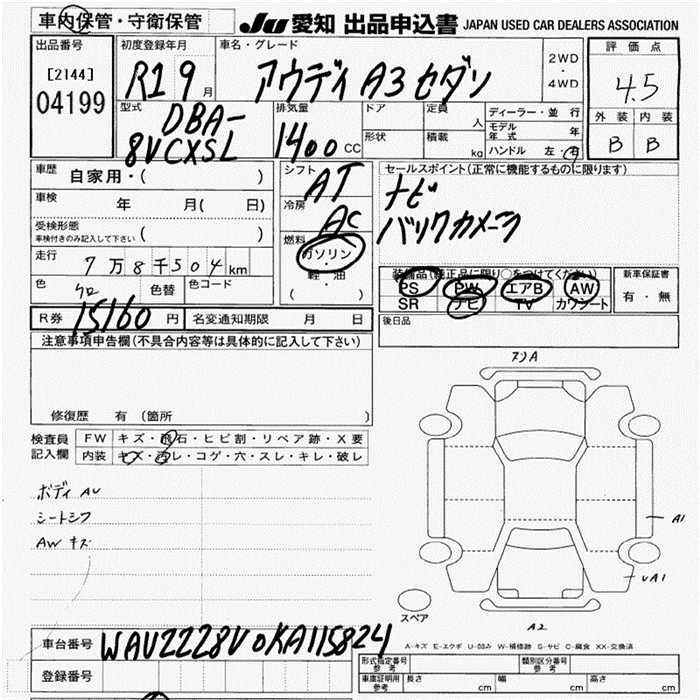 車内保管・守衛保管
JU 愛知 出品申込書 JAPAN USED CAR DEALERS ASSOCIATION
出品番号
[2144]
04199
初度登録年月
R1 9月
車名・グレード
アウディ A3 セダン
2WD
・
4WD
評価点
4.5
外装 内装
B B
型式
DBA-
8VCXSL
排気量
1400 CC
ドア
形状
定員
人
積載
kg
ディーラー・並行
モデル年式 年
ハンドル 左・右
車歴
自家用・( )
車検
年 月( 日)
受検形態
車検付きのみ記入して下さい ( )
走行
7万8千504km
色
クロ
色替
色コード
シフト
AT
冷房
AC
燃料
ガソリン
・
軽油
( )
セールスポイント(正常に機能するものに限ります)
ナビ
バックカメラ
装備品(純正品に限り○をつけてください。)
PS PW エアB AW
SR ナビ TV カワシート
新車保証書
有・無
R券 15160 円
名変通知期限 月 日
後日品
注意事項申告欄(不具合内容等は具体的に記入して下さい)
修復歴 有 (箇所
検査員
記入欄
FW キズ・飛石・ヒビ割・リペア跡・X要
内装 キズ・汚レ・コゲ・穴・スレ・キレ・破レ
ボディ AU
シートシワ
AW キズ
A1
UA1
スペア
A2
A-キズ E-エクボ U-凹み W-補修跡 S-サビ C-腐食 XX-交換済
車台番号
WAUZZZ8V0KA115824
登録番号
形式指定番号
参考
類別区分番号
参考
車庫証明用
参考
長さ cm
幅 cm
高さ cm